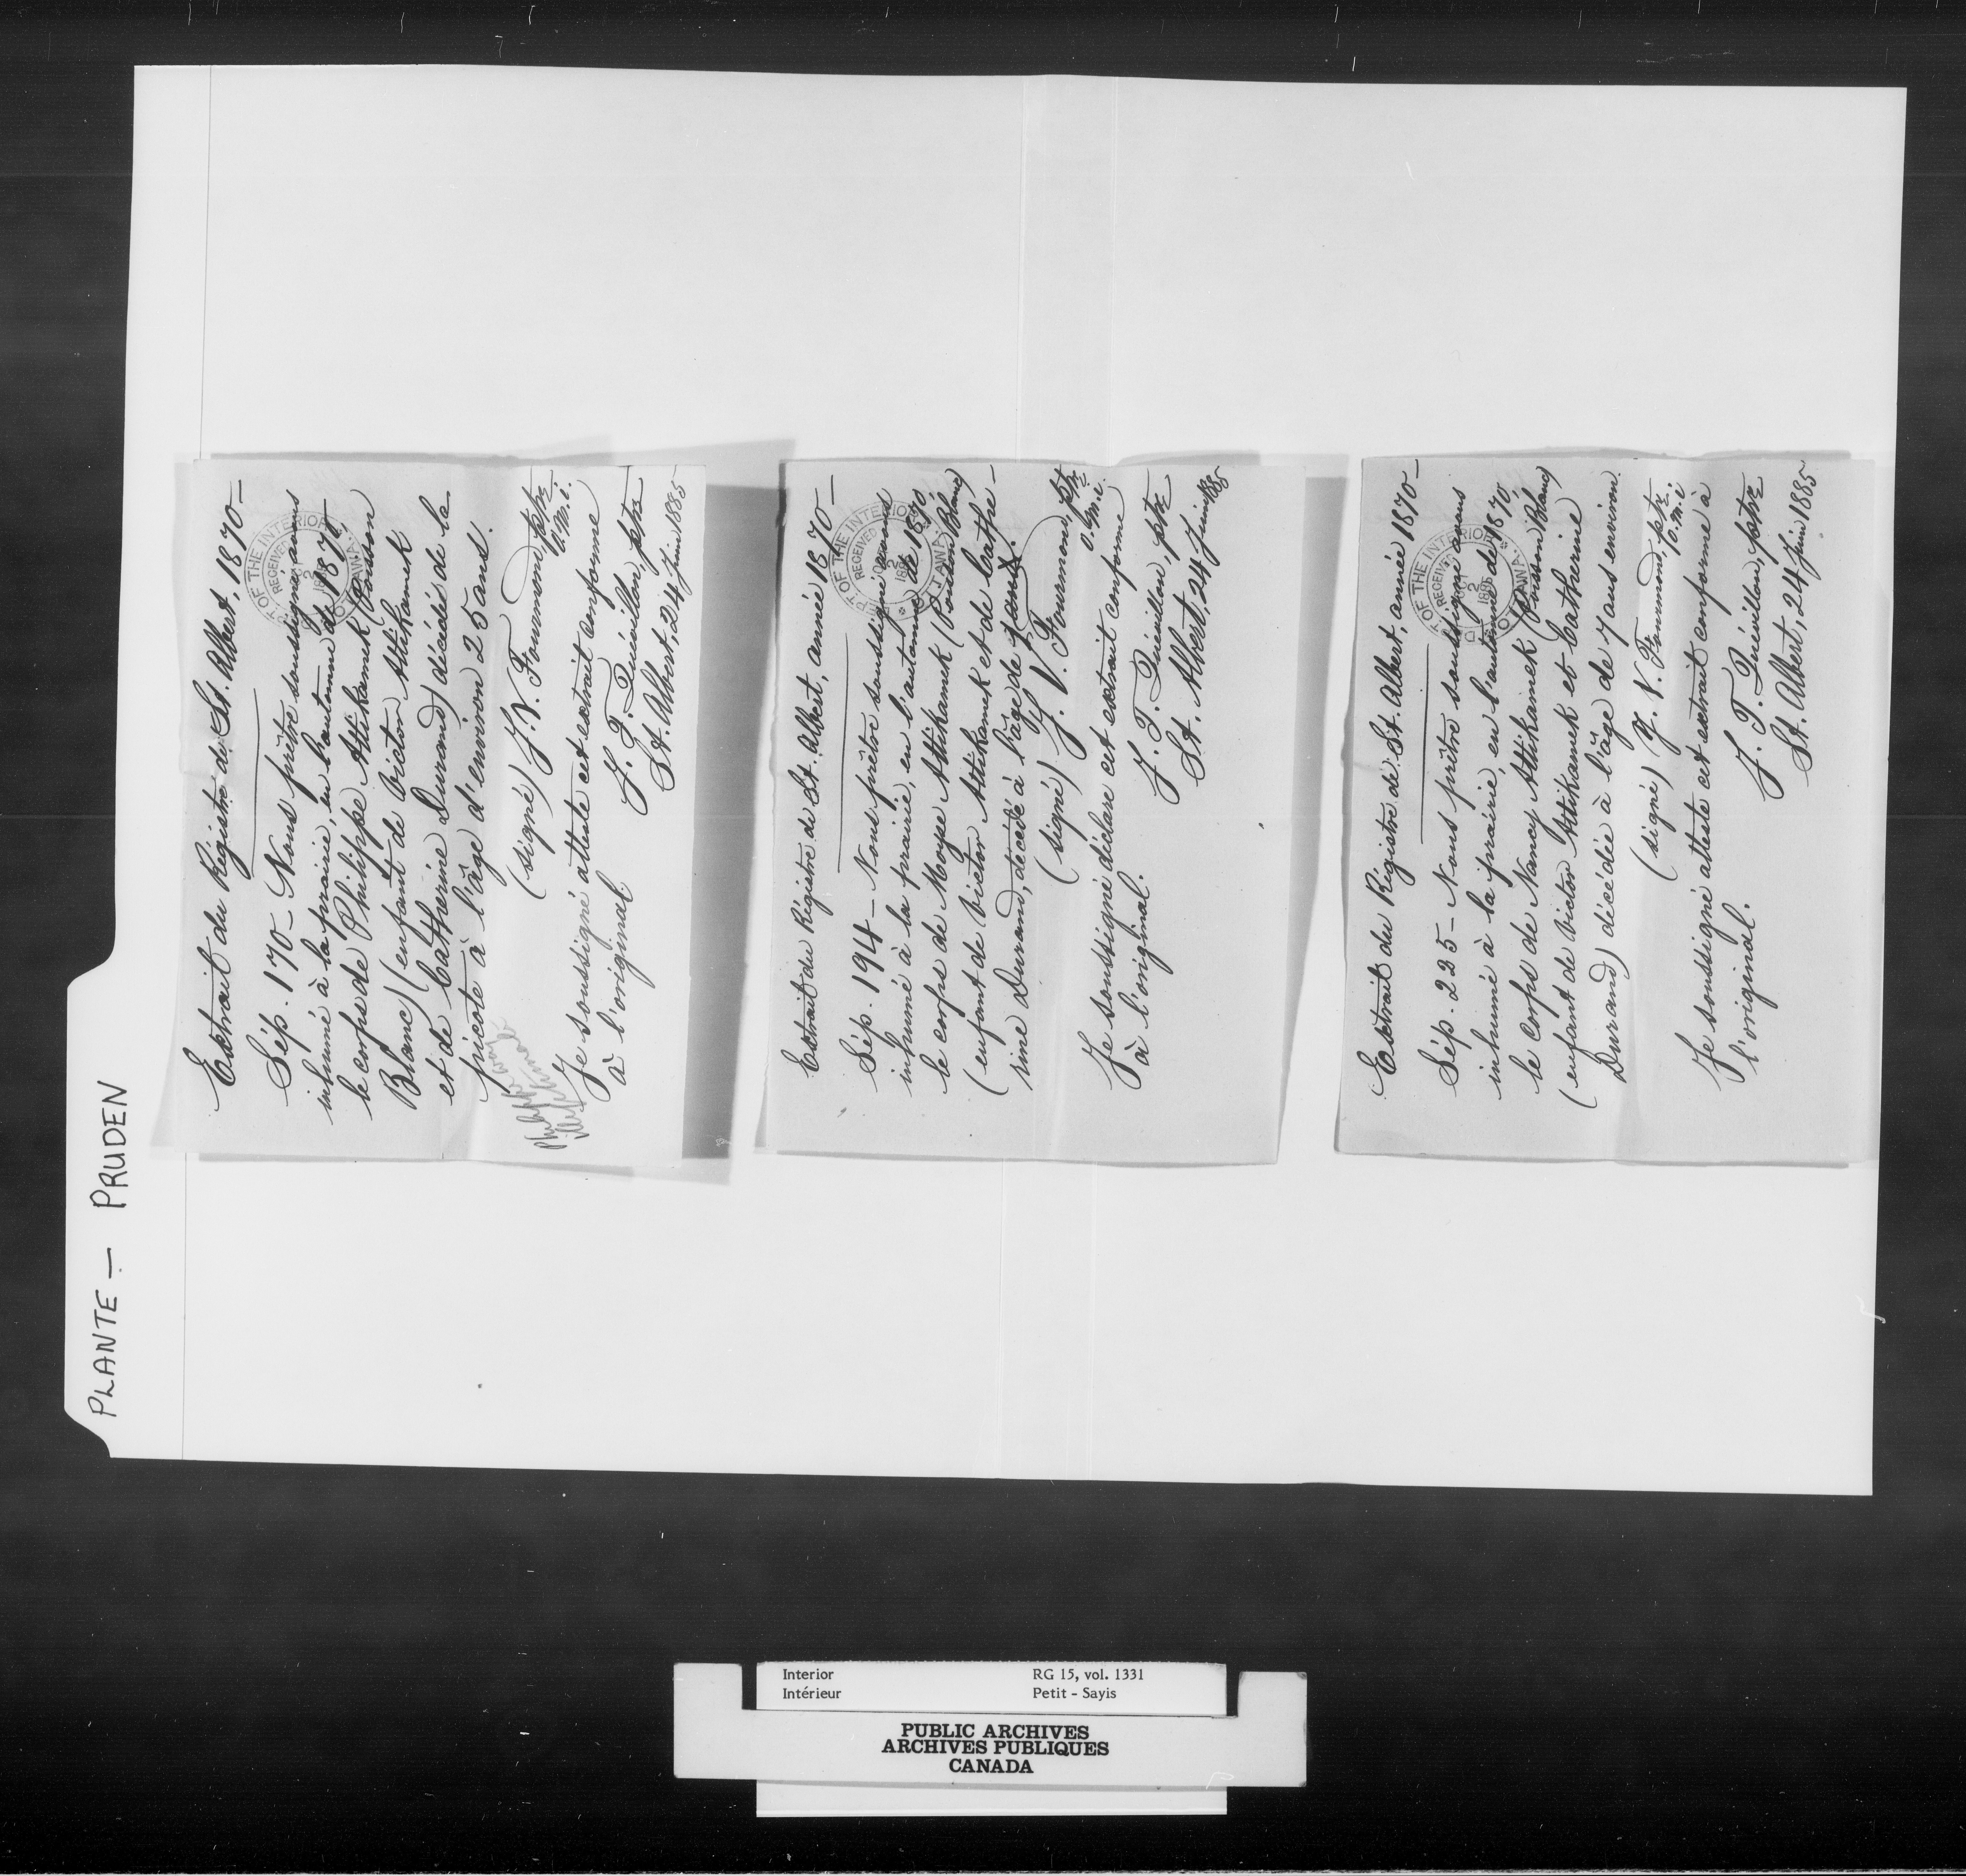 PLANTE — PRUDEN
Extrait du Régistre de St. Albert, 1870—
Sép. 170 — Nous prêtre soussigné avons
inhumé à la prairie, en l'automne de 1870,
le corps de Philippe Attikamek (Poisson
Blanc) (enfant de Victor Attikamek
et de Catherine Durand) décédé de la
picote à l'âge d'environ 25 ans.
(signé) J. V. Fourmond, ptre
O.M.I.
Je soussigné atteste cet extrait conforme
à l'original.
J. T. Quévillon, ptre
St. Albert, 24 Juin 1885
DEPT OF THE INTERIOR
RECEIVED
OTTAWA
Extrait du Régistre de St. Albert, année 1870—
Sép. 194 — Nous prêtre soussigné avons
inhumé à la prairie, en l'automne de 1870,
le corps de Moyse Attikamek (Poisson Blanc)
(enfant de Victor Attikamek et de Cathe-
rine Durand, décédé à l'âge de
(signé) J. V. Fourmond, ptre
O.M.I.
Je soussigné déclare cet extrait conforme
à l'original.
J. T. Quévillon, ptre
St. Albert, 24 Juin 1885
DEPT OF THE INTERIOR
RECEIVED
OTTAWA
Extrait du Régistre de St. Albert, année 1870—
Sép. 225 — Nous prêtre soussigné avons
inhumé à la prairie, en l'automne de 1870,
le corps de Nancy Attikamek (Poisson Blanc)
(enfant de Victor Attikamek et Catherine
Durand) décédée à l'âge de 7 ans environ.
(signé) J. V. Fourmond, ptre
O.M.I.
Je soussigné atteste cet extrait conforme à
l'original.
J. T. Quévillon, ptre
St. Albert, 24 Juin 1885
DEPT OF THE INTERIOR
RECEIVED
OTTAWA
Interior RG 15, vol. 1331
Intérieur Petit - Sayis
PUBLIC ARCHIVES
ARCHIVES PUBLIQUES
CANADA